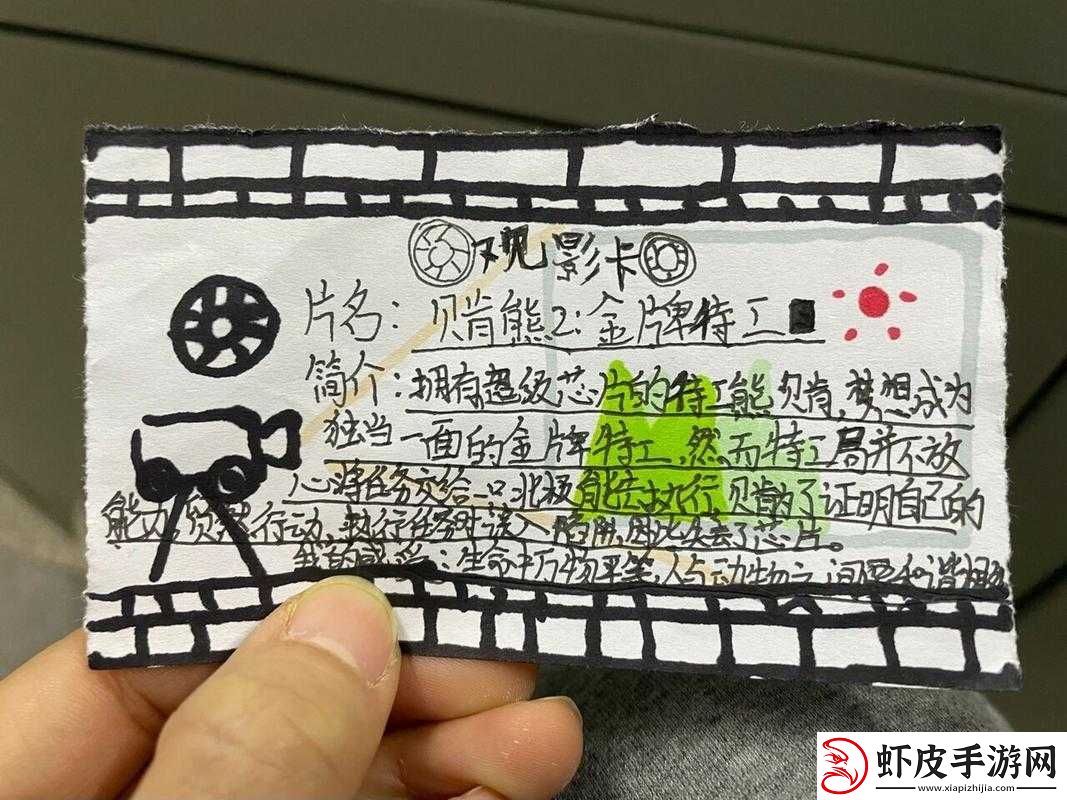 观影卡
片名：贝肯熊2：金牌特工
简介：拥有超级芯片的特工熊贝肯，梦想成为
独当一面的金牌特工，然而特工局并不放
心将任务交给一只北极熊去执行贝肯为了证明自己的
能力，贸然行动，执行任务时误入陷阱，因此失去了芯片。
我的感受：生命中万物平等，人与动物之间要和谐相处
虾皮手游网
www.xiapizhijia.com